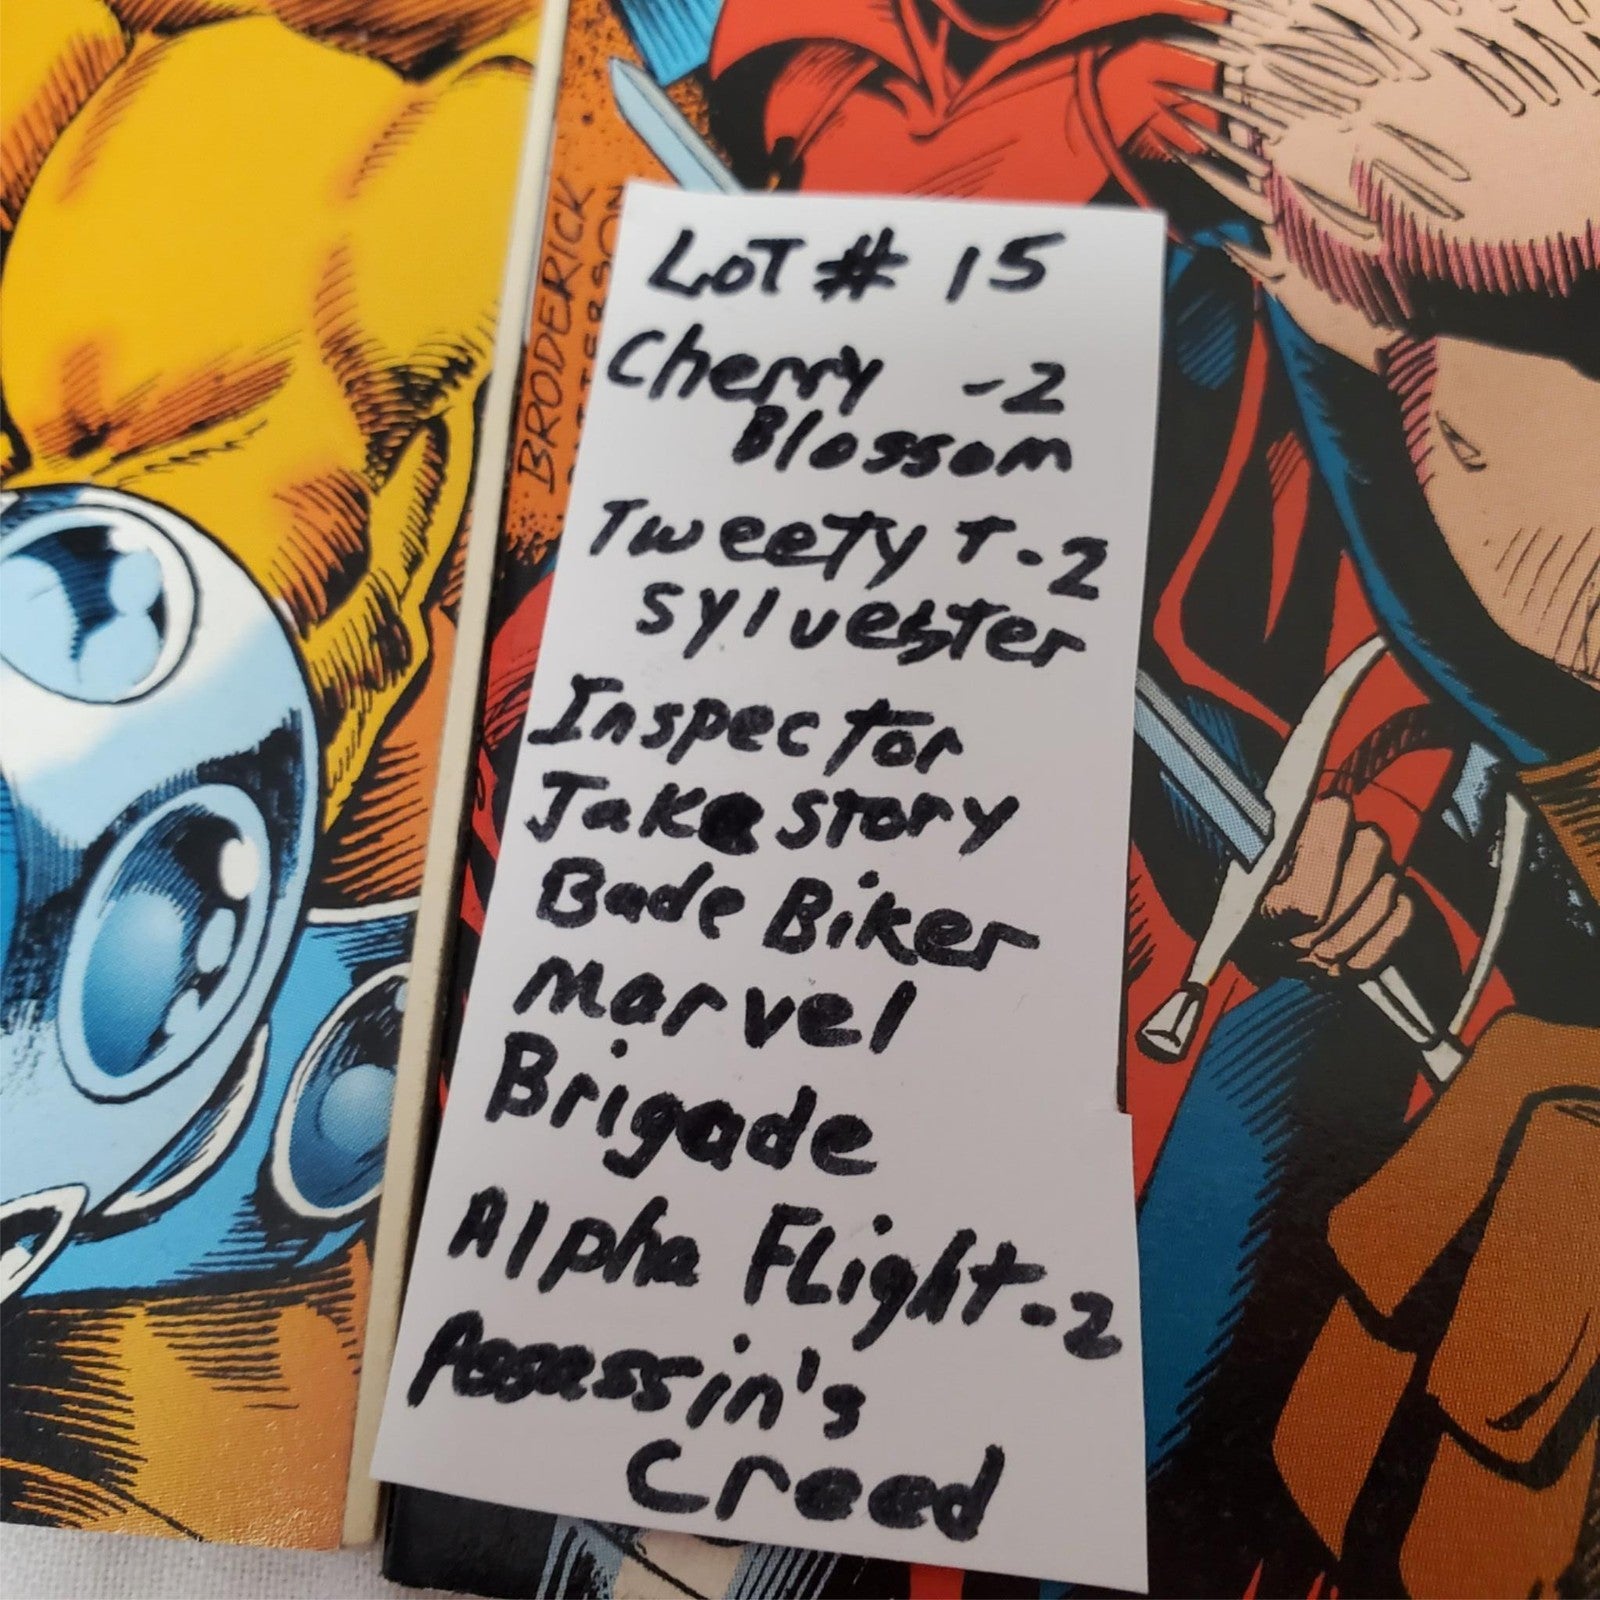 LOT # 15
Cherry -2
Blossom
Tweety T-2
Sylvester
Inspector
Jake Story
Bade Biker
Marvel
Brigade
Alpha FLight-2
Assassin's
Creed
BRODERICK